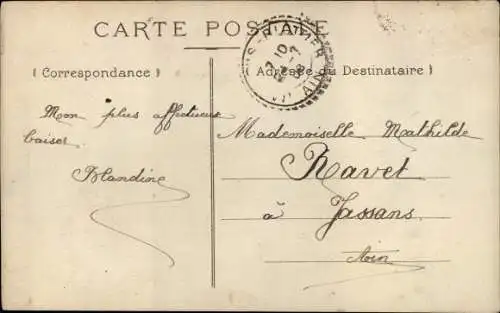 CARTE POSTALE
(Correspondance)
Adresse du Destinataire)
AIN
Mon plus affectueux
baiser
Blandine
Mademoiselle Mathilde
Ravet
à Jassans
Ain